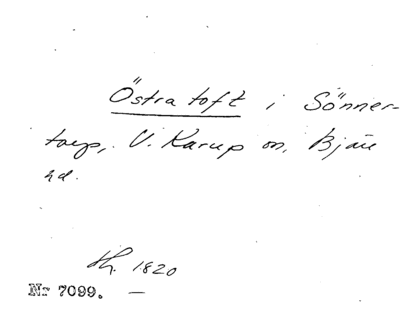 Östra toft i Sönner-
torp, V. Karup sn, Bjäre
hd.
Sk. 1820
Nr 7099. —